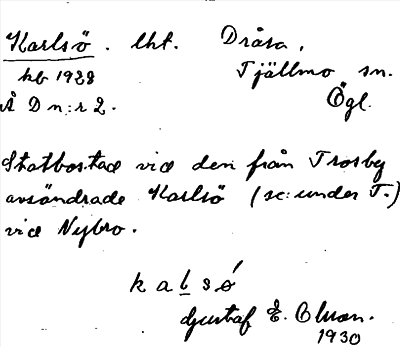 Karlsö. lht. Dråsa,
hb 1928 Tjällmo sn.
Å D n:r 2. Ögl.
Statbostad vid den från Trosby
avsöndrade Karlsö (sc: under T.)
vid Nybro.
k a l s ǿ
Gustaf E. Olson.
1930